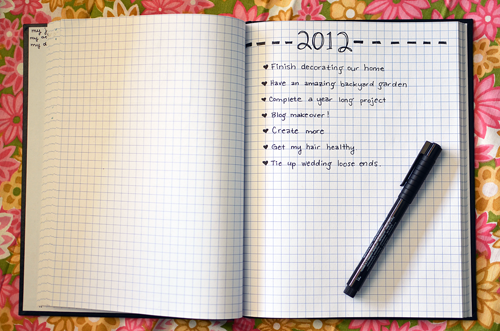 my
my
my
2012
Finish decorating our home
Have an amazing backyard garden
Complete a year long project
Blog makeover!
Create more
Get my hair healthy.
Tie up wedding loose ends.